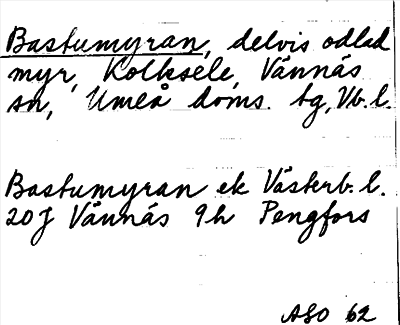 Bastumyran, delvis odlad
myr, Kolksele, Vännäs
sn, Umeå doms. tg, Vb. l.
Bastumyran ek Västerb. l.
20J Vännäs 9h Pengfors
ASO 62